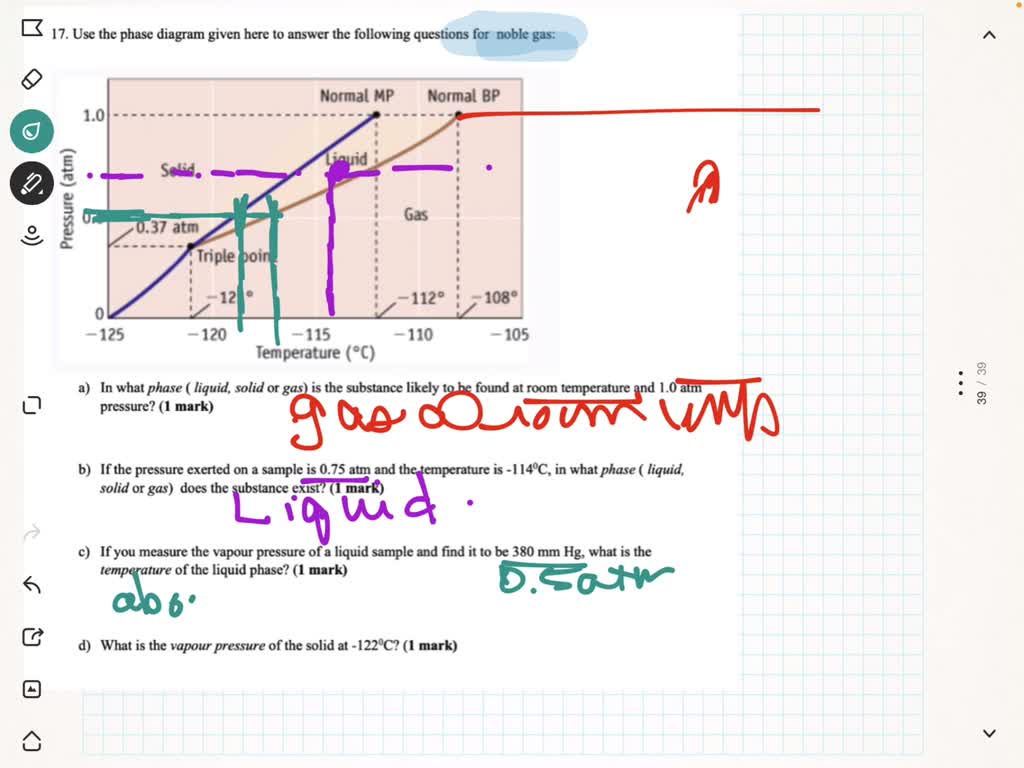 17. Use the phase diagram given here to answer the following questions for noble gas:
Normal MP Normal BP
1.0
Liquid
Solid
Gas
0.37 atm
Triple point
−112° −108°
0
−125 −120 −115 −110 −105
Pressure (atm)
Temperature (°C)
a) In what phase ( liquid, solid or gas) is the substance likely to be found at room temperature and 1.0 atm
pressure? (1 mark)
gas @ room
b) If the pressure exerted on a sample is 0.75 atm and the temperature is -114⁰C, in what phase ( liquid,
solid or gas) does the substance exist? (1 mark)
Liquid.
c) If you measure the vapour pressure of a liquid sample and find it to be 380 mm Hg, what is the
temperature of the liquid phase? (1 mark)
0.5 atm
abo
d) What is the vapour pressure of the solid at -122⁰C? (1 mark)
39 / 39